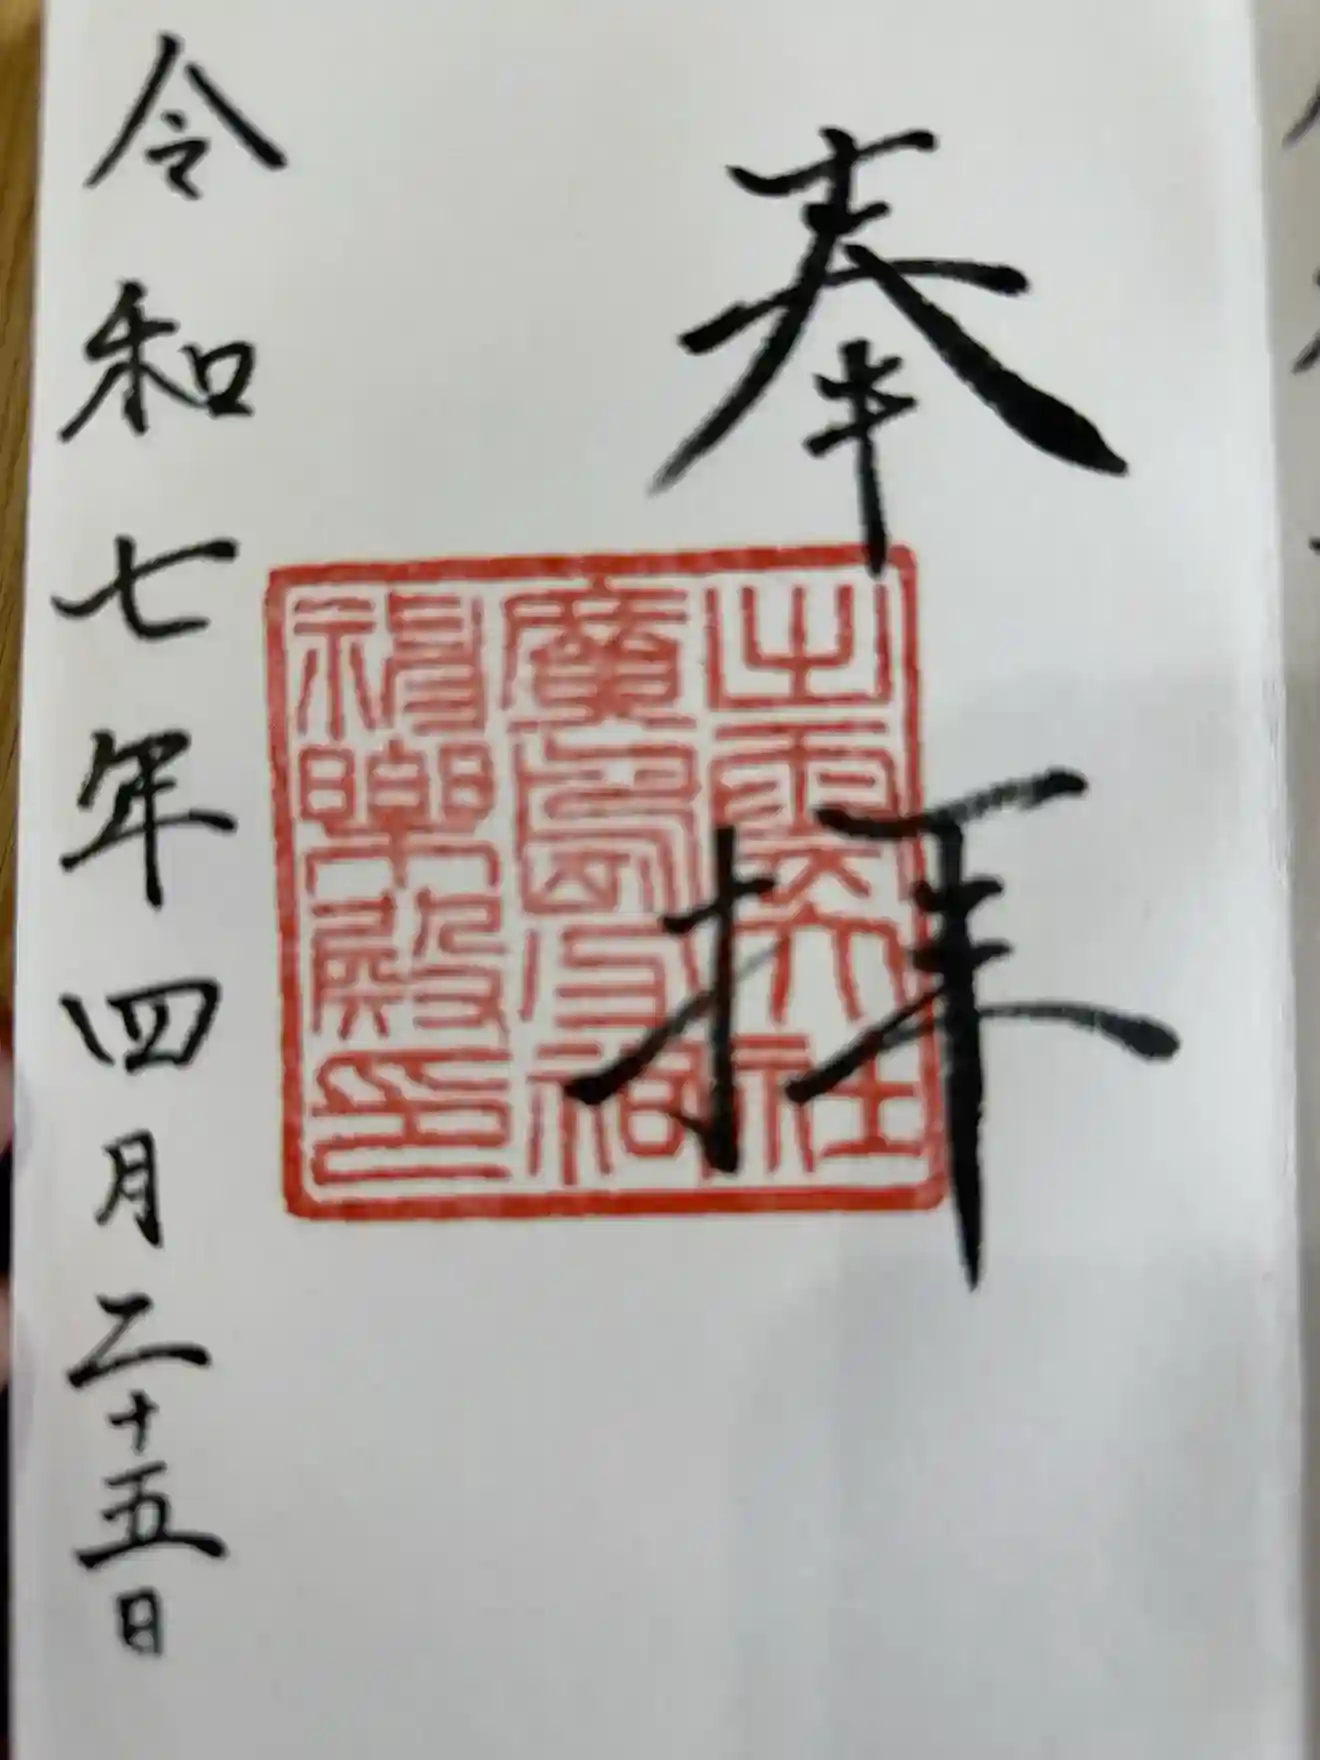 奉拝
出雲大社
廣島分祠
神樂殿印
令和七年四月二十五日